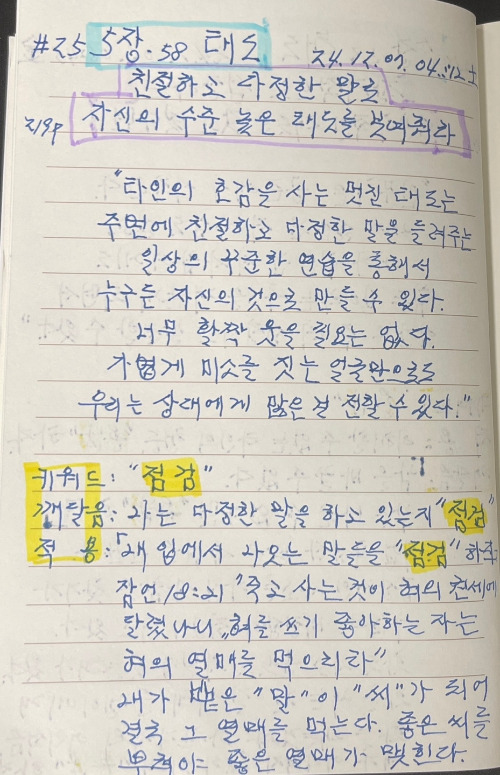 #25 5장. 58 태도 24.12.07. 04:12 土
친절하고 다정한 말로
219p 자신의 수준 높은 태도를 보여줘라
"타인의 호감을 사는 멋진 태도는
주변에 친절하고 다정한 말을 들려주는
일상의 꾸준한 연습을 통해서
누구든 자신의 것으로 만들 수 있다.
너무 활짝 웃을 필요는 없다.
가볍게 미소를 짓는 얼굴만으로도
우리는 상대에게 많은 걸 전할 수 있다."
키워드: "점검"
깨달음: "나는 다정한 말을 하고 있는지 "점검"
적 용: 「내 입에서 나오는 말들을 "점검"하자
잠언 18:21 "죽고 사는 것이 혀의 권세에
달렸나니 혀를 쓰기 좋아하는 자는
혀의 열매를 먹으리라"
내가 뱉은 "말"이 "씨"가 되어
결국 그 열매를 먹는다. 좋은 씨를
뿌려야 좋은 열매가 맺힌다.